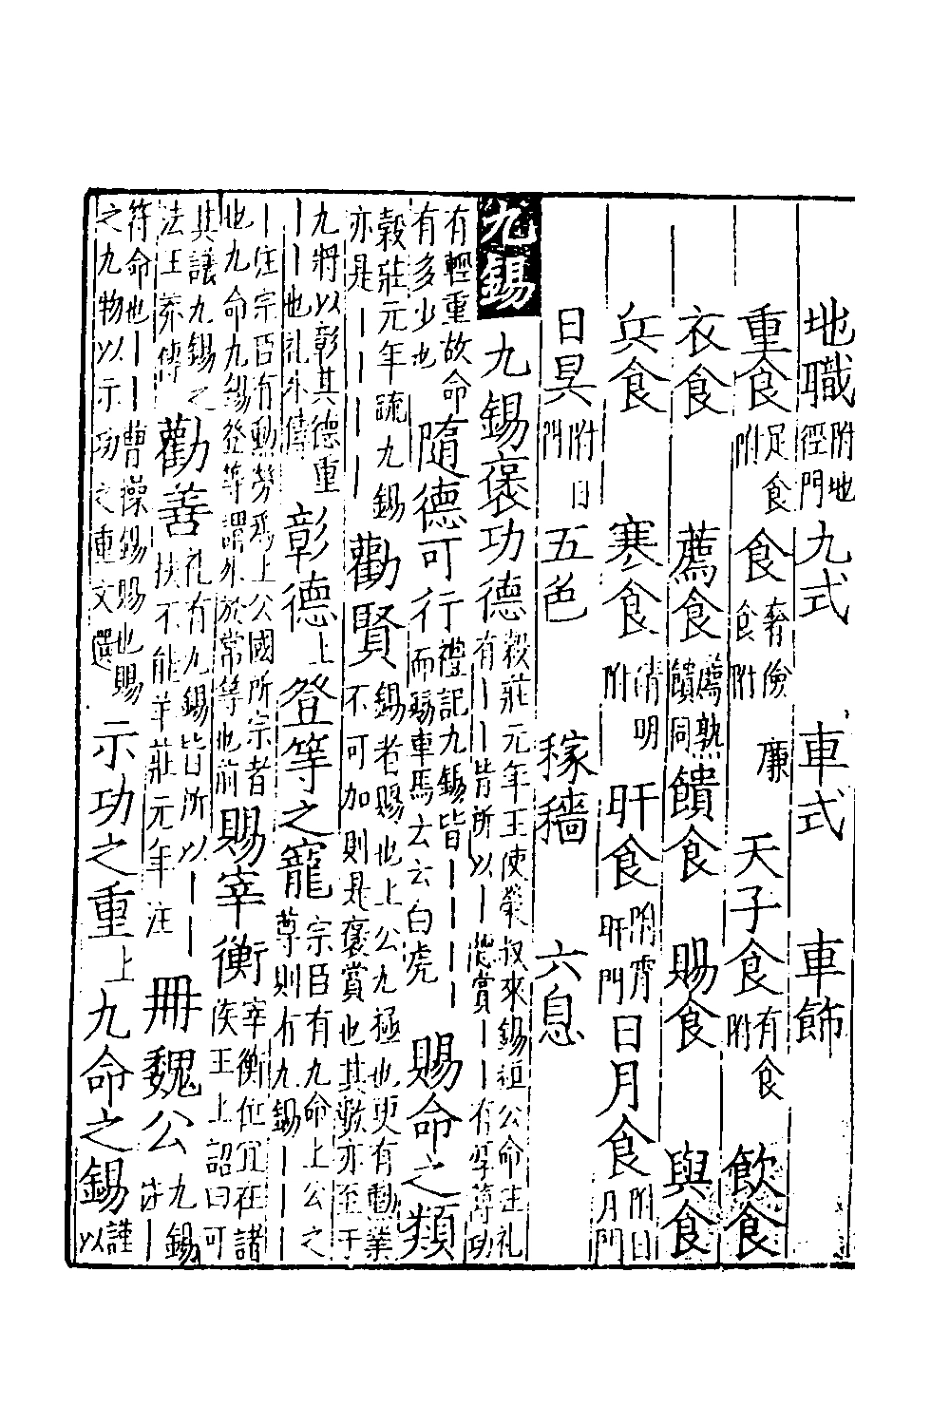 地職附地徑門 九式 車式 車飾
重食足食附 食奢儉食附 廉 天子食有食附 飲食
衣食 薦食薦熟饋同 饋食 賜食 與食
兵食 寒食清明附 旰食附宵旰門 日月食附日月門
日昃附日門 五色 稼穡 六息
九錫 九錫褒功德穀莊元年王使榮叔來錫桓公命注礼有丨丨皆所以丨德賞丨丨有厚薄功
有輕重故命有多少也 隨德可行禮記九錫皆丨丨丨丨而賜車馬云云白虎 賜命之類
穀莊元年疏九錫亦是丨丨丨丨 勸賢錫者賜也上公九極也更有勳業不可加則是褒賞也其數亦至于
九將以彰其德重丨丨也礼外傳 彰德上 登等之寵宗臣有九命上公之尊則有九錫丨丨
丨注宗臣有勳勞為上公國所宗者也九命九錫登等謂外於常等也前 賜宰衡宰衡位宜在諸侯王上詔曰可
其議九錫之法王莽傳 勸善礼有九錫皆所以丨丨扶不能羊莊元年注 冊魏公九錫注丨
符命也丨丨曹操錫賜也賜之九物以示功之重文選 示功之重上 九命之錫謹以